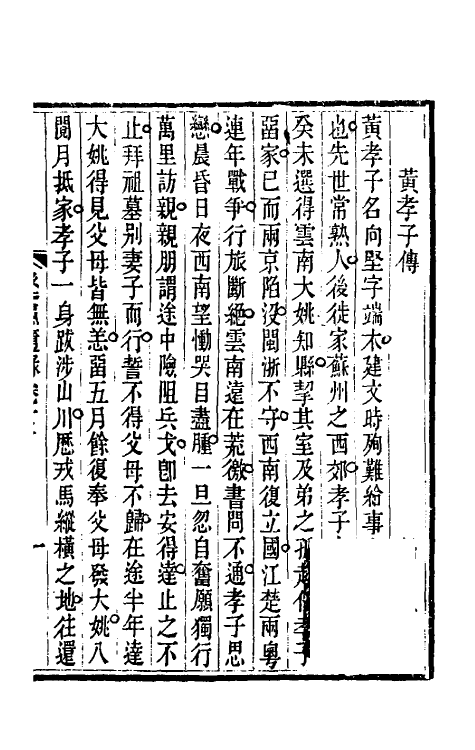 黃孝子傳
黃孝子名向堅字端木建文時殉難給事
也先世常熟人後徙家蘇州之西郊孝子
癸未選得雲南大姚知縣挈其室及弟之孤赴任孝子
畱家已而兩京陷没閩浙不守西南復立國江楚兩粤
連年戰爭行旅斷絕雲南遠在荒徼書問不通孝子思
戀晨昏日夜西南望慟哭目盡腫一旦忽自奮願獨行
萬里訪親親朋謂途中險阻兵戈卽去安得達止之不
止拜祖墓別妻子而行誓不得父母不歸在途半年達
大姚得見父母皆無恙畱五月餘復奉父母發大姚八
閱月抵家孝子一身跋涉山川歷戎馬縱橫之地往還
一